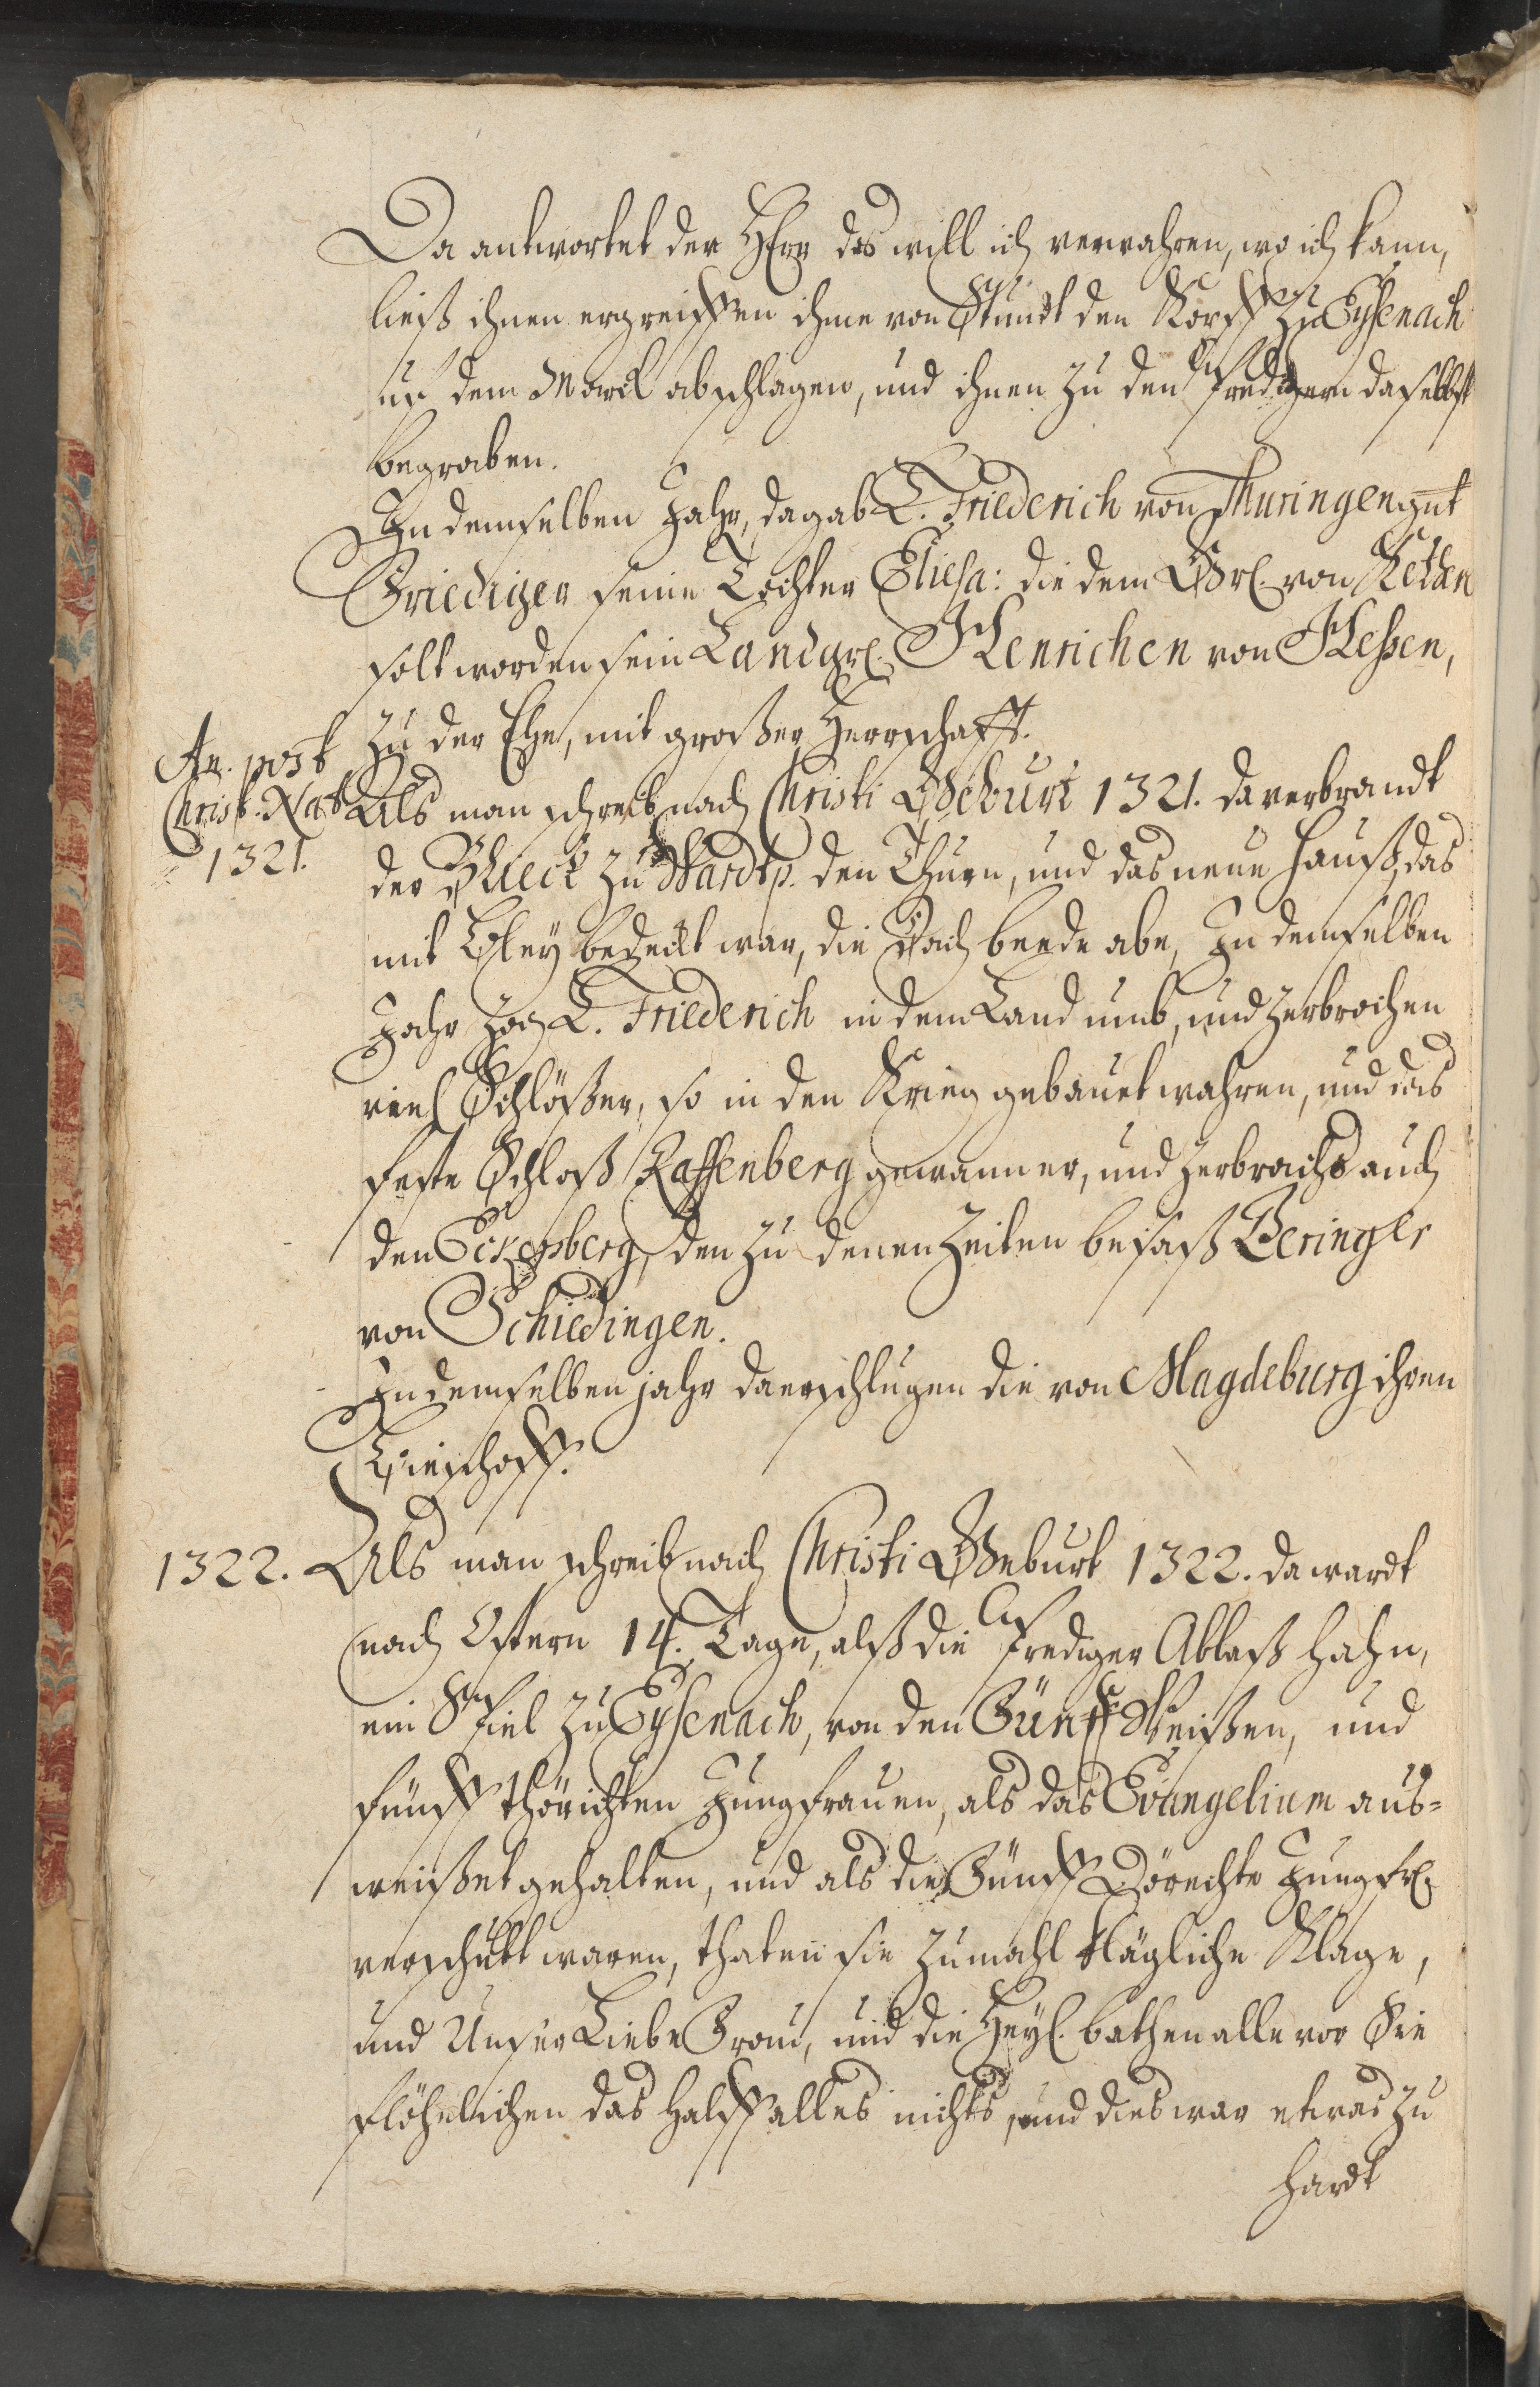 Da antwortet der HErr das will ich verwahren, wo ich kann,
ließ ihnen ergreiffen ihme von Stundt den Kopff zu Eysenach
uf dem Marck abschlagen, und ihnen zu den Predigern daselbst
begraben.
In demselben Jahr, da gab L. Friederich von Thuringen gnt
Friediger seine Tochter Eliesa: die dem Grl. von
solt worden sein Landgrl. Henrichen von Hessen,
zu der Ehe, mit großer Herrschafft.
An. post
Christ. Nat.
1321.
Als man schreib nach Christi Geburt 1321. da verbrandt
der Blieck zu Wartp. den Thurn, und das neue Hauß, das
mit Bley bedeckt war, die Dach beede abe, In demselben
Jahr zog L. Friederich in dem Land umb, und zerbrochen
viel Schlößer, so in den Krieg gebauet wahren, und das
feste Schloß Raffenberg gewann er, und zerbrachs auch
den Eckersberg, den zu denen Zeiten besaß Beringer
von Schiedingen.
In demselben jahr da erschlugen die von Magdeburg ihren
Bieschoff.
1322. Als man schreib nach Christi Geburt 1322. da wardt
nach Ostern 14. Tage, alß die Prediger Ablaß hahn,
ein Spiel zu Eysenach, von den Fünff Weißen, und
fünff thörichten Jungfrauen, als das Evangelium aus=
weißet gehalten, und als die Fünff Dörechte Jungfrl.
verschütt waren, thaten sie zumahl klägliche Klage,
und Unser Liebe Frau, und die Heyl. bathen alle vor Sie
flöhelichen das halff alles nichts, und dies war etwas zu
hardt